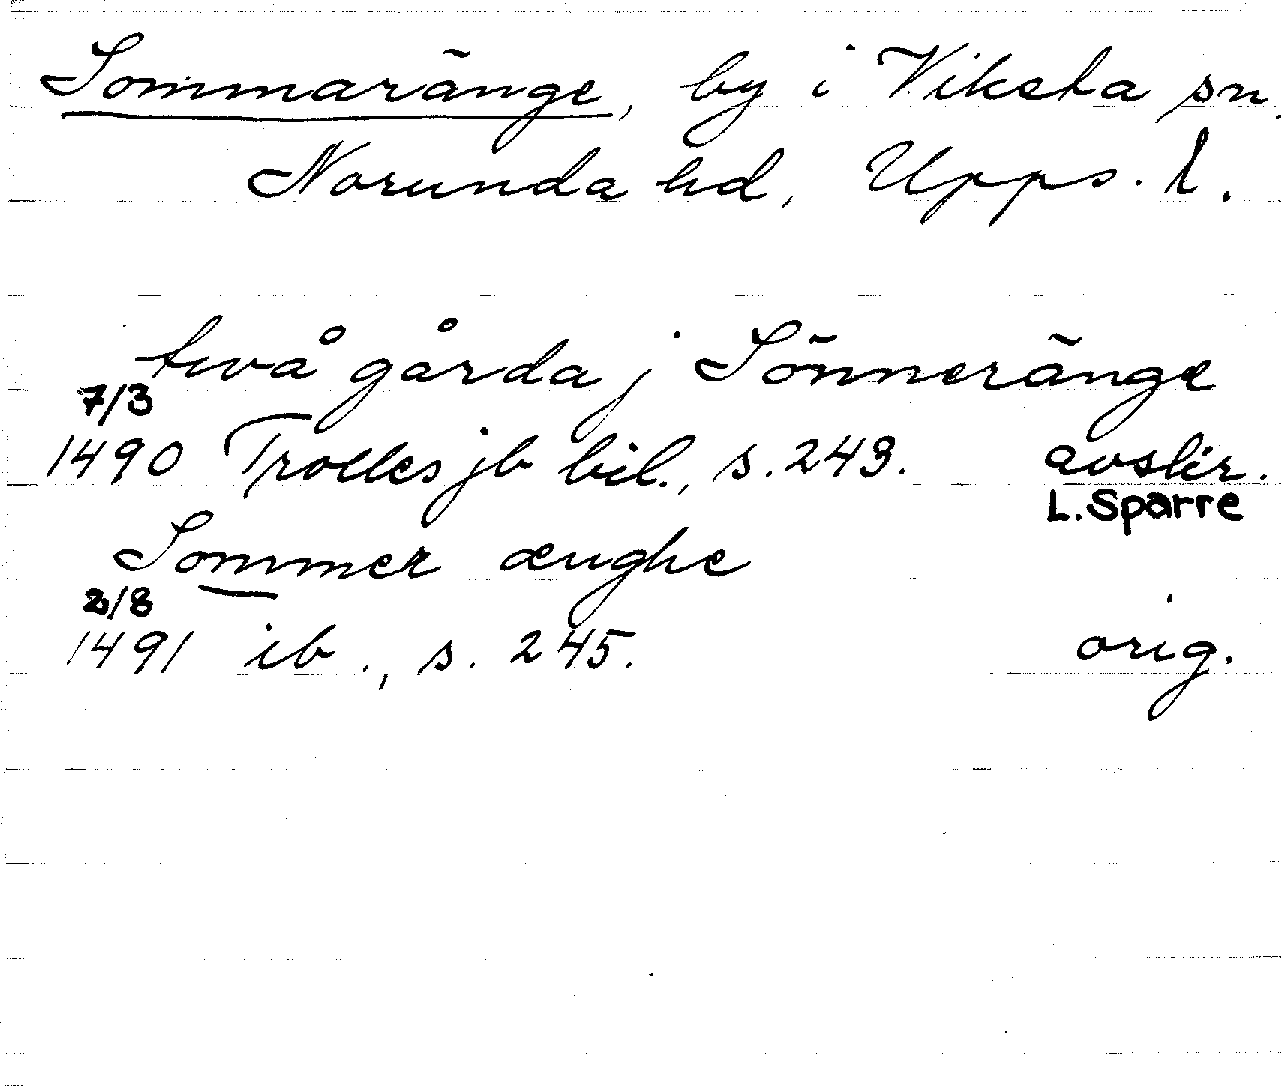 Sommaränge, by i Viksta sn.
Norunda hd, Upps. l.
twå gårda j Sönneränge
7/3
1490 Trolles jb bil., s. 243. avskr.
L. Sparre
Sommer ænghe
2/8
1491 ib., s. 245. orig.